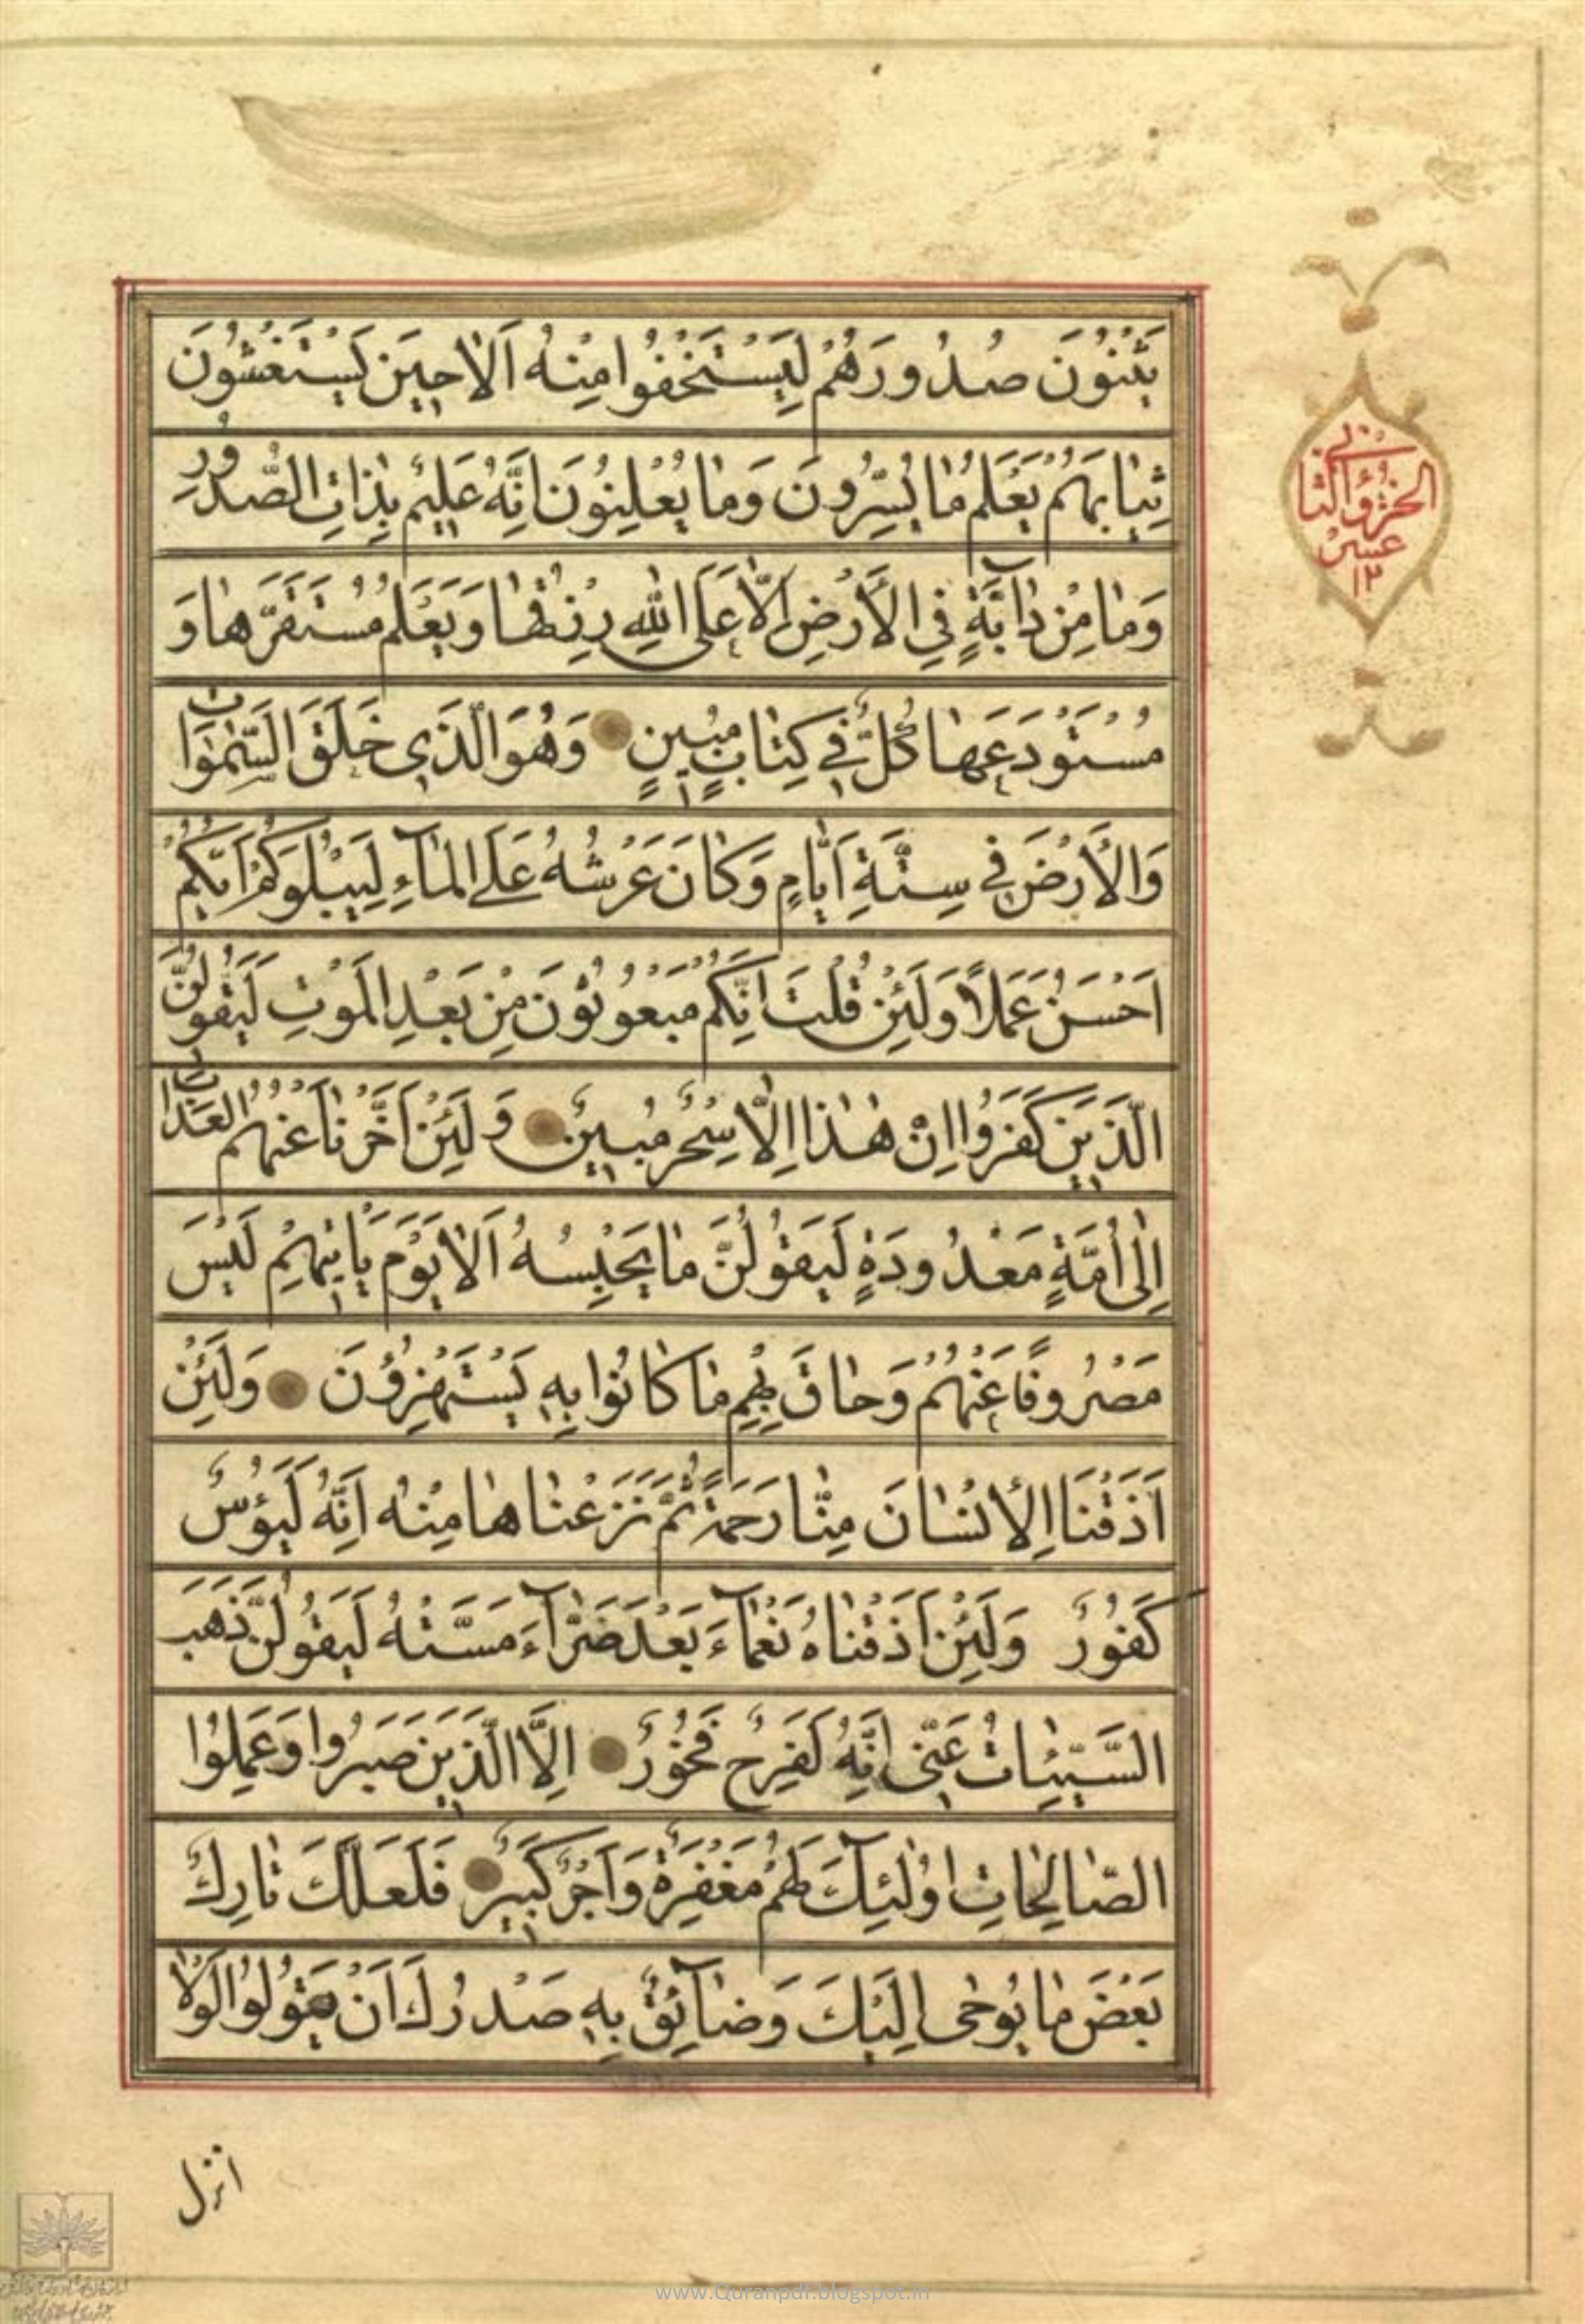 يَثْنُونَ صُدُورَهُمْ لِيَسْتَخْفُوا مِنْهُ اَلَا حِينَ يَسْتَغْشُونَ
ثِيَابَهُمْ يَعْلَمُ مَا يُسِرُّونَ وَمَا يُعْلِنُونَ اِنَّهُ عَلِيمٌ بِذَاتِ الصُّدُورِ
وَمَا مِنْ دَآبَّةٍ فِي الْأَرْضِ اِلَّا عَلَى اللهِ رِزْقُهَا وَيَعْلَمُ مُسْتَقَرَّهَا وَ
مُسْتَوْدَعَهَا كُلٌّ فِي كِتَابٍ مُبِينٍ وَهُوَ الَّذِي خَلَقَ السَّمٰوَاتِ
وَالْأَرْضَ فِي سِتَّةِ اَيَّامٍ وَكَانَ عَرْشُهُ عَلَى الْمَآءِ لِيَبْلُوَكُمْ اَيُّكُمْ
اَحْسَنُ عَمَلًا وَلَئِنْ قُلْتَ اِنَّكُمْ مَبْعُوثُونَ مِنْ بَعْدِ الْمَوْتِ لَيَقُولَنَّ
الَّذِينَ كَفَرُوا اِنْ هٰذَا اِلَّا سِحْرٌ مُبِينٌ وَلَئِنْ اَخَّرْنَا عَنْهُمُ الْعَذَابَ
اِلٰى اُمَّةٍ مَعْدُودَةٍ لَيَقُولُنَّ مَا يَحْبِسُهُ اَلَا يَوْمَ يَأْتِيهِمْ لَيْسَ
مَصْرُوفًا عَنْهُمْ وَحَاقَ بِهِمْ مَا كَانُوا بِهِ يَسْتَهْزِؤُنَ وَلَئِنْ
اَذَقْنَا الْاِنْسَانَ مِنَّا رَحْمَةً ثُمَّ نَزَعْنَاهَا مِنْهُ اِنَّهُ لَيَؤُسٌ
كَفُورٌ وَلَئِنْ اَذَقْنَاهُ نَعْمَآءَ بَعْدَ ضَرَّآءَ مَسَّتْهُ لَيَقُولَنَّ ذَهَبَ
السَّيِّئَاتُ عَنِّي اِنَّهُ لَفَرِحٌ فَخُورٌ اِلَّا الَّذِينَ صَبَرُوا وَعَمِلُوا
الصَّالِحَاتِ اُولٰئِكَ لَهُمْ مَغْفِرَةٌ وَاَجْرٌ كَبِيرٌ فَلَعَلَّكَ تَارِكٌ
بَعْضَ مَا يُوحٰى اِلَيْكَ وَضَآئِقٌ بِهِ صَدْرُكَ اَنْ يَقُولُوا لَوْلَا
انزل
الجزؤ الثانى
عشر
١٢
www.Quranpdf.blogspot.in